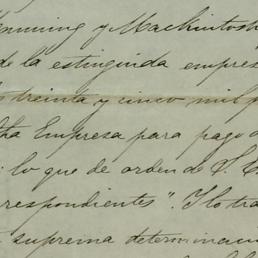 Manning y Mackintosh
de la estinguida empres
treinta y cinco mil p
Empresa para pago d
lo que de orden de S. E.
respondientes". Y lo tra
suprema determinaci